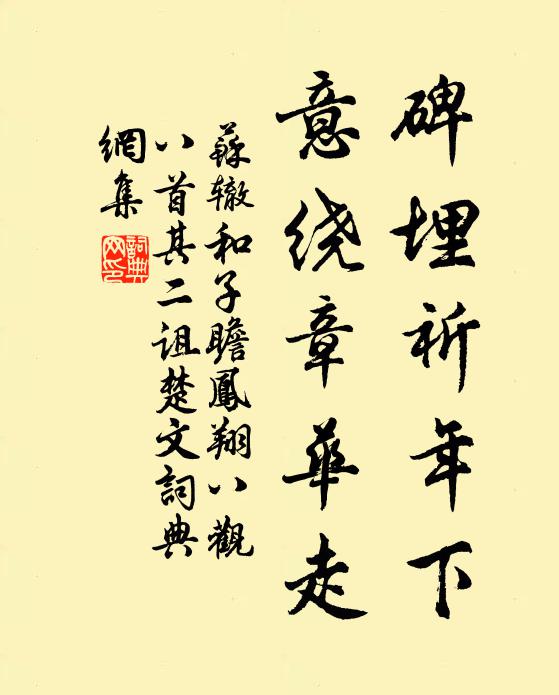 碑埋祈年下
意绕章华走
蘇辙和子瞻鳳翔八觀
八首其二诅楚文詞典
網集
詞典網印